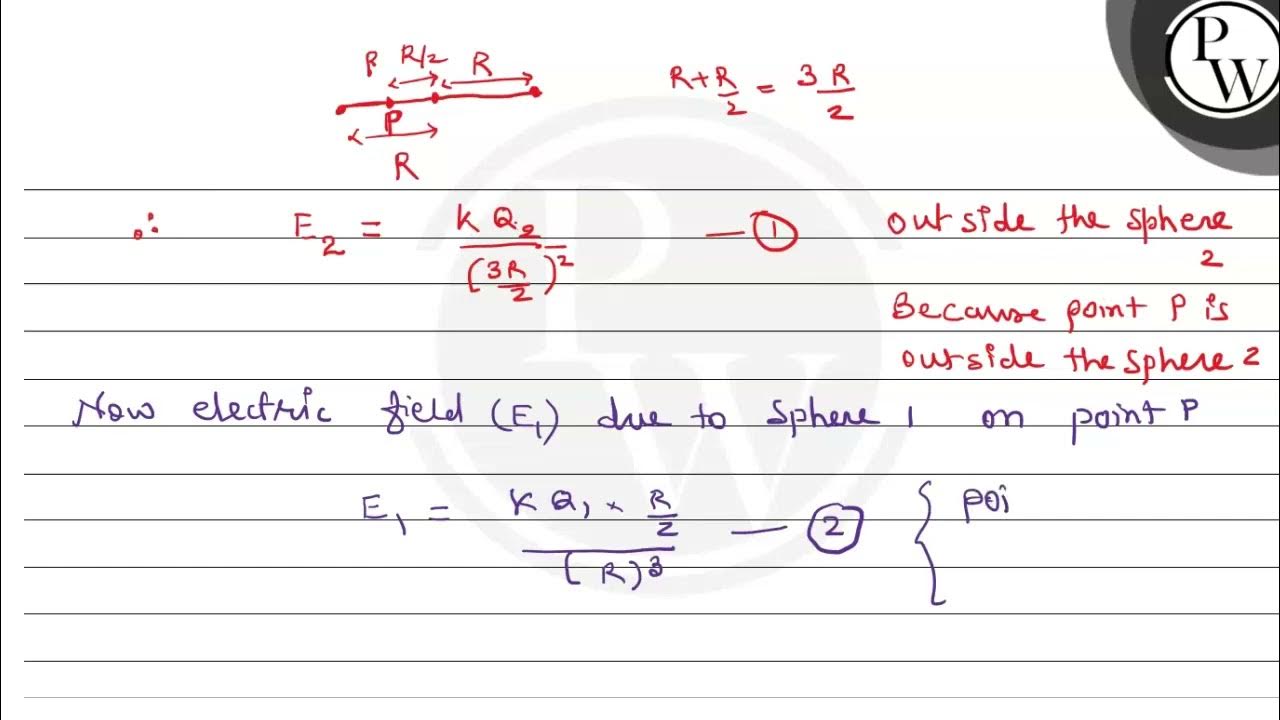 P R/2 R
P
R
R + R/2 = 3R/2
∴ E₂ = K Q₂ / (3R/2)² — ① outside the sphere 2
Because point P is
outside the sphere 2
Now electric field (E₁) due to sphere 1 on point P
E₁ = K Q₁ × R/2 / (R)³ — ② { poi
PW
PW